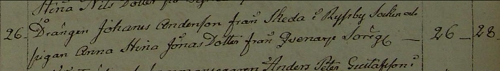 Stina Nils Dotter
26. Drängen Johanes Anderson från Skeda i Ryssby Sockn och
pigan Anna Stina Jonas Dotter från Qvenarp Sörg. — 26 — 28
Anders Peter Gustafsson i